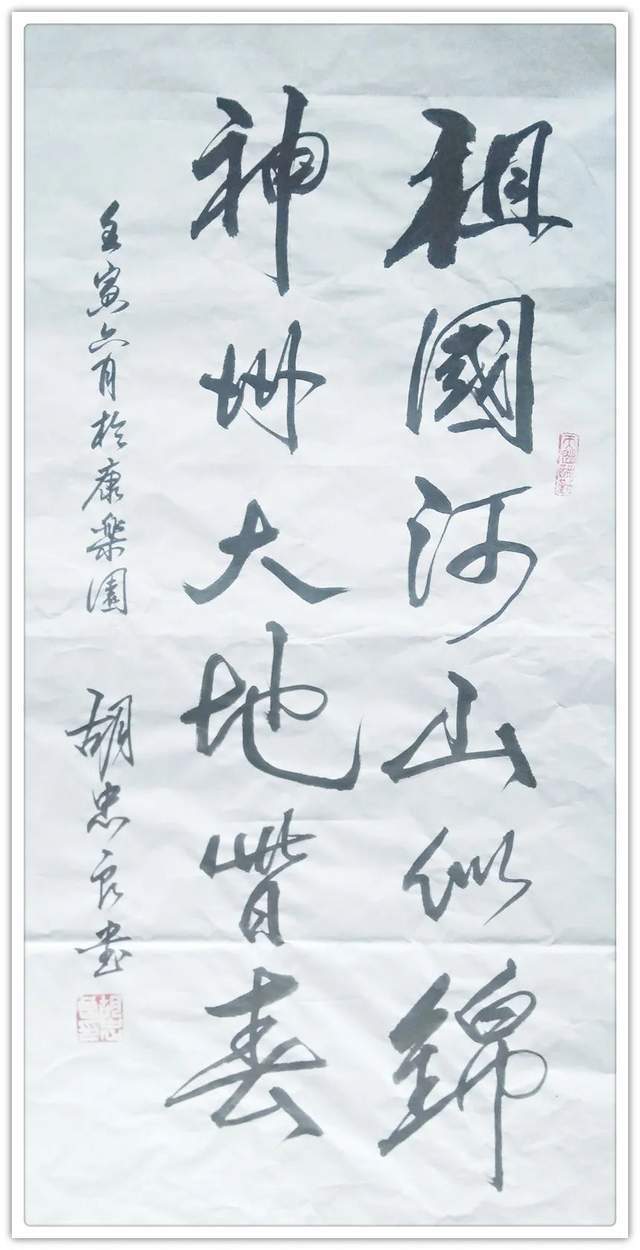 祖國河山似錦
神州大地皆春
壬寅六月於康樂園
胡忠良書